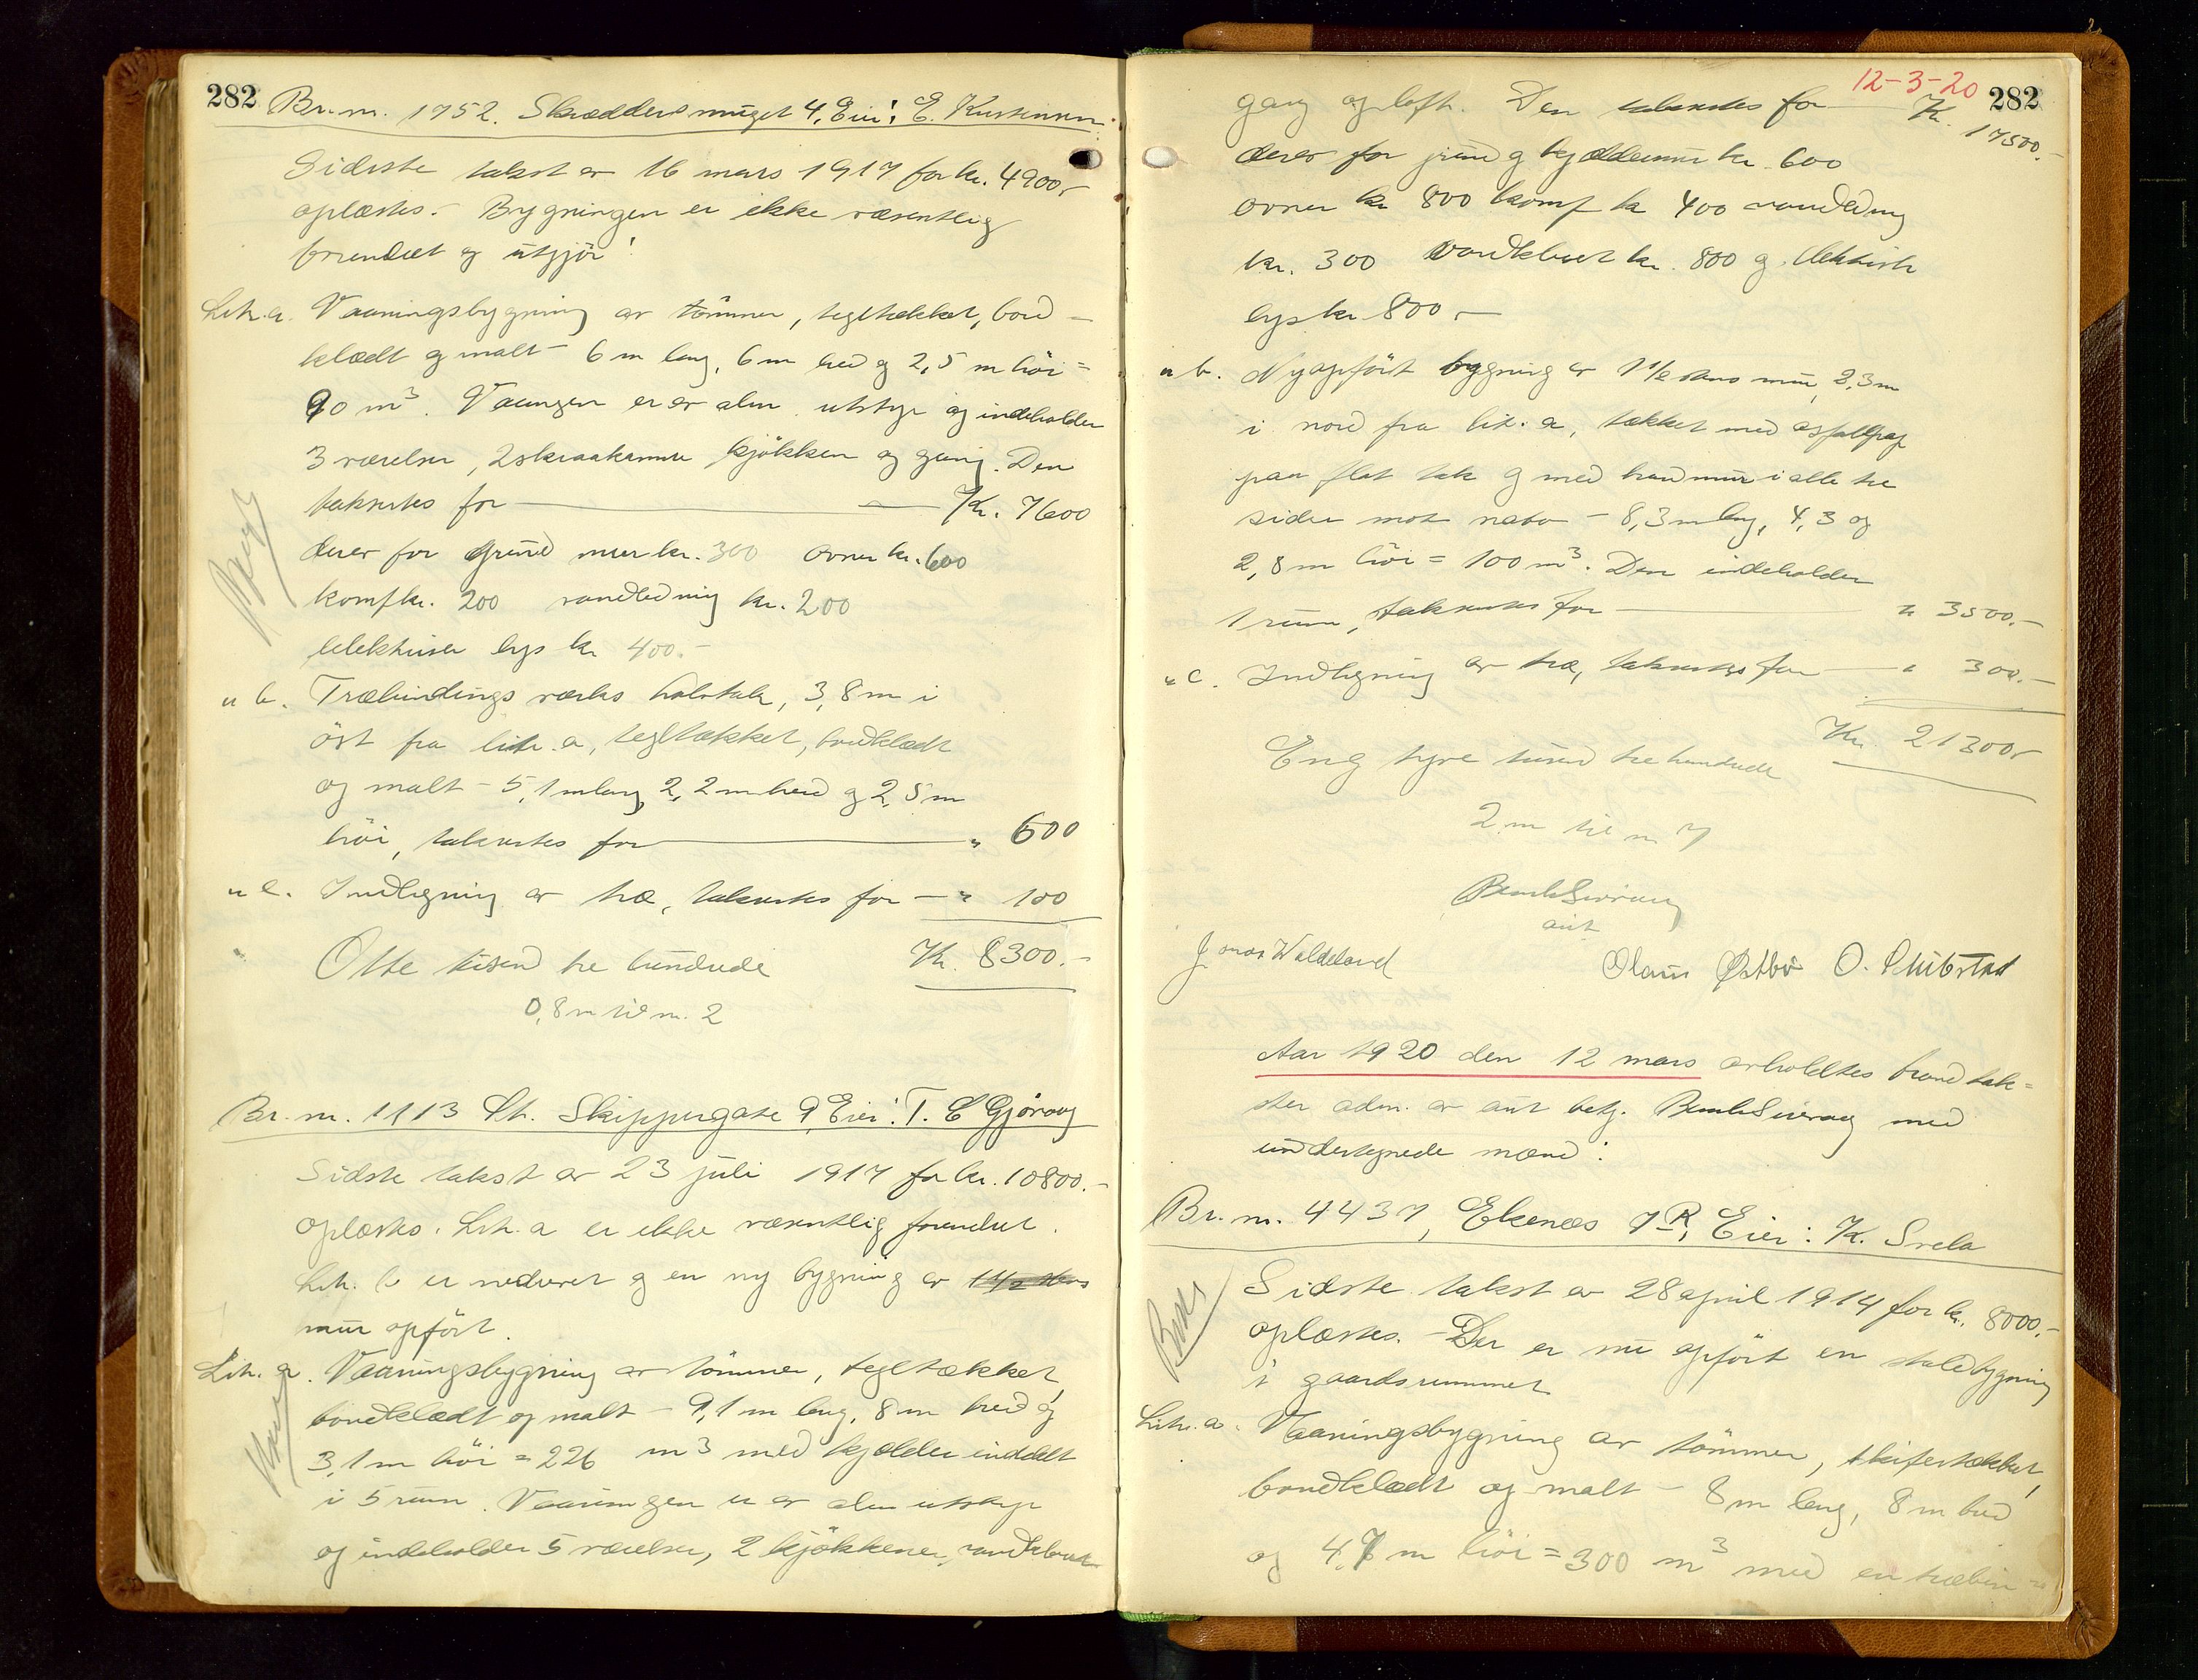 282
Br. nr. 1752. Skræddersmuget 4, Eier: E. Kristensen.
Sidste takst av 16 mars 1917 for kr. 4900,-
oplæstes. - Bygningen er ikke væsentlig
forandret og utgjør:
Litr. a. Vaaningsbygning av tömmer, tegltækket, bord-
klædt og malt - 6 m lang, 6 m bred og 2,5 m höi =
90 m³. Vaaningen er av alm. utstyr og indeholder
3 værelser, 2 skraakammer kjökken og gang. Den
takseres for — Kr. 7600
derav for Grund mur kr. 300 ovner kr. 600
komf kr. 200 vandledning kr. 200
elektriser lys kr 400.-
" b. Træbindingsværks halvtak, 3,8 m i
öst fra litr. a, tegltækket, bordklædt
og malt - 5,1 m lang 2,2 m bred og 2,5 m
höi, takseres for — " 600
" c. Indhegning av træ, takseres for — " 100
Otte tusen tre hundrede Kr. 8300.-
0,8 m til nr. 2
Br. nr. 1113 St. Skippergate 9, Eier: T. E Gjörvag
Sidste takst av 23 juli 1917 for kr. 10800.-
oplæstes. Litr. a er ikke væsentlig forandret.
Litr. b er nedrevet og en ny bygning av 1 1/2 stens
mur opfört.
Litr. a. Vaaningsbygning av tömmer, tegltækket,
bordklædt og malt - 9,1 m lang, 8 m bred og
3,1 m höi = 226 m³ med kjælder inddelt
i 5 rum. Vaaningen er av alm utstyr
og indeholder 5 værelser, 2 kjökkener, vandklosett
12-3-20 282
gang og loft. Den takseres for Kr. 17500.-
derav for grund og kjældermur kr. 600
ovner kr 800 komf kr 400 vandledning
kr. 300 vandkloset kr. 800 og elektrisk
lys kr 800,-
" b. Nyopfört bygning av 1 1/2 stens mur, 2,3 m
i nord fra litr. a, tækket med asfaltpap
paa flat tak og med brandmur i alle tre
sider mot nabo - 8,3 m lang, 4,3 og
2,8 m höi = 100 m³. Den indeholder
1 rum, takseres for — " 3500.-
" c. Indhegning av træ, takseres for — " 300.-
Kr 21300,-
En og tyve tusen tre hundrede
2 m til nr 7
Bernh Sivrang
aut
Jonas Waldeland Olaus Østbö O. Stubstad
Aar 1920 den 12 mars avholdtes brandtak-
ster adm. av aut betj. Bernh Sivrang med
undertegnede mænd:
Br. nr. 4437, Ekenæs 7 R, Eier: K. Svela
Sidste takst av 28 april 1914 for kr. 8000.-
oplæstes. - Der er nu opfört en staldbygning
i gaardsrummet
Litr. a. Vaaningsbygning av tömmer, skifertækket,
bordklædt og malt - 8 m lang, 8 m bred
og 4,7 m höi = 300 m³ med en træbin-